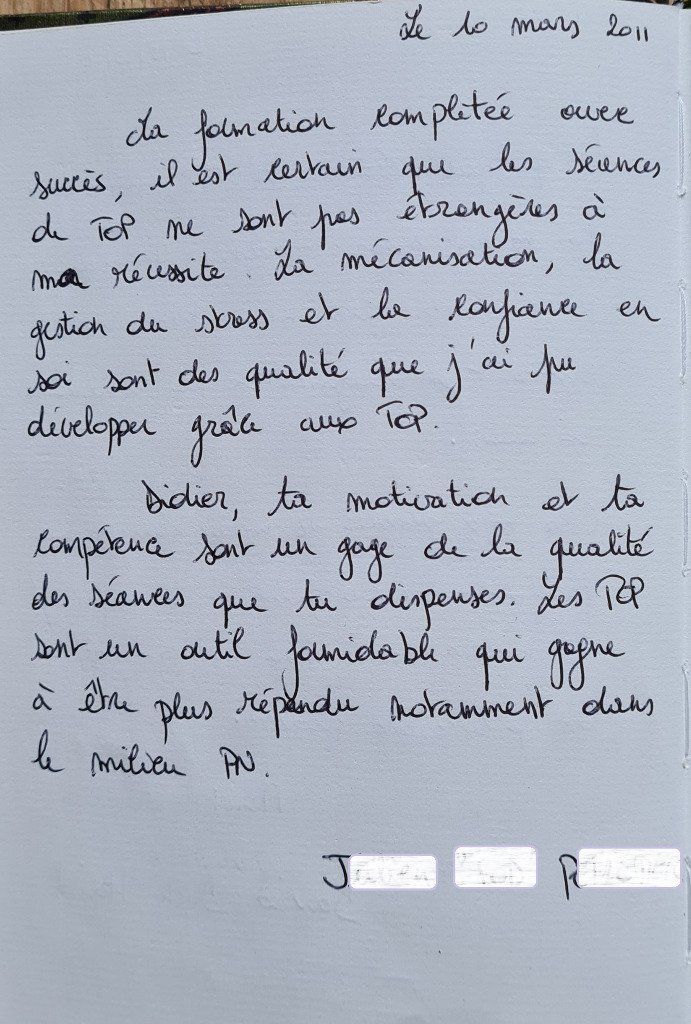 Le 10 mars 2011
La formation completée avec
succès, il est certain que les séances
de TOP ne sont pas étrangères à
ma réussite. La mécanisation, la
gestion du stress et la confiance en
soi sont des qualité que j'ai pu
développer grâce aux TOP.
Didier, ta motivation et ta
compétence sont un gage de la qualité
des séances que tu dispenses. Les TOP
sont un outil formidable qui gagne
à être plus répendu notamment dans
le milieu PN.
J R